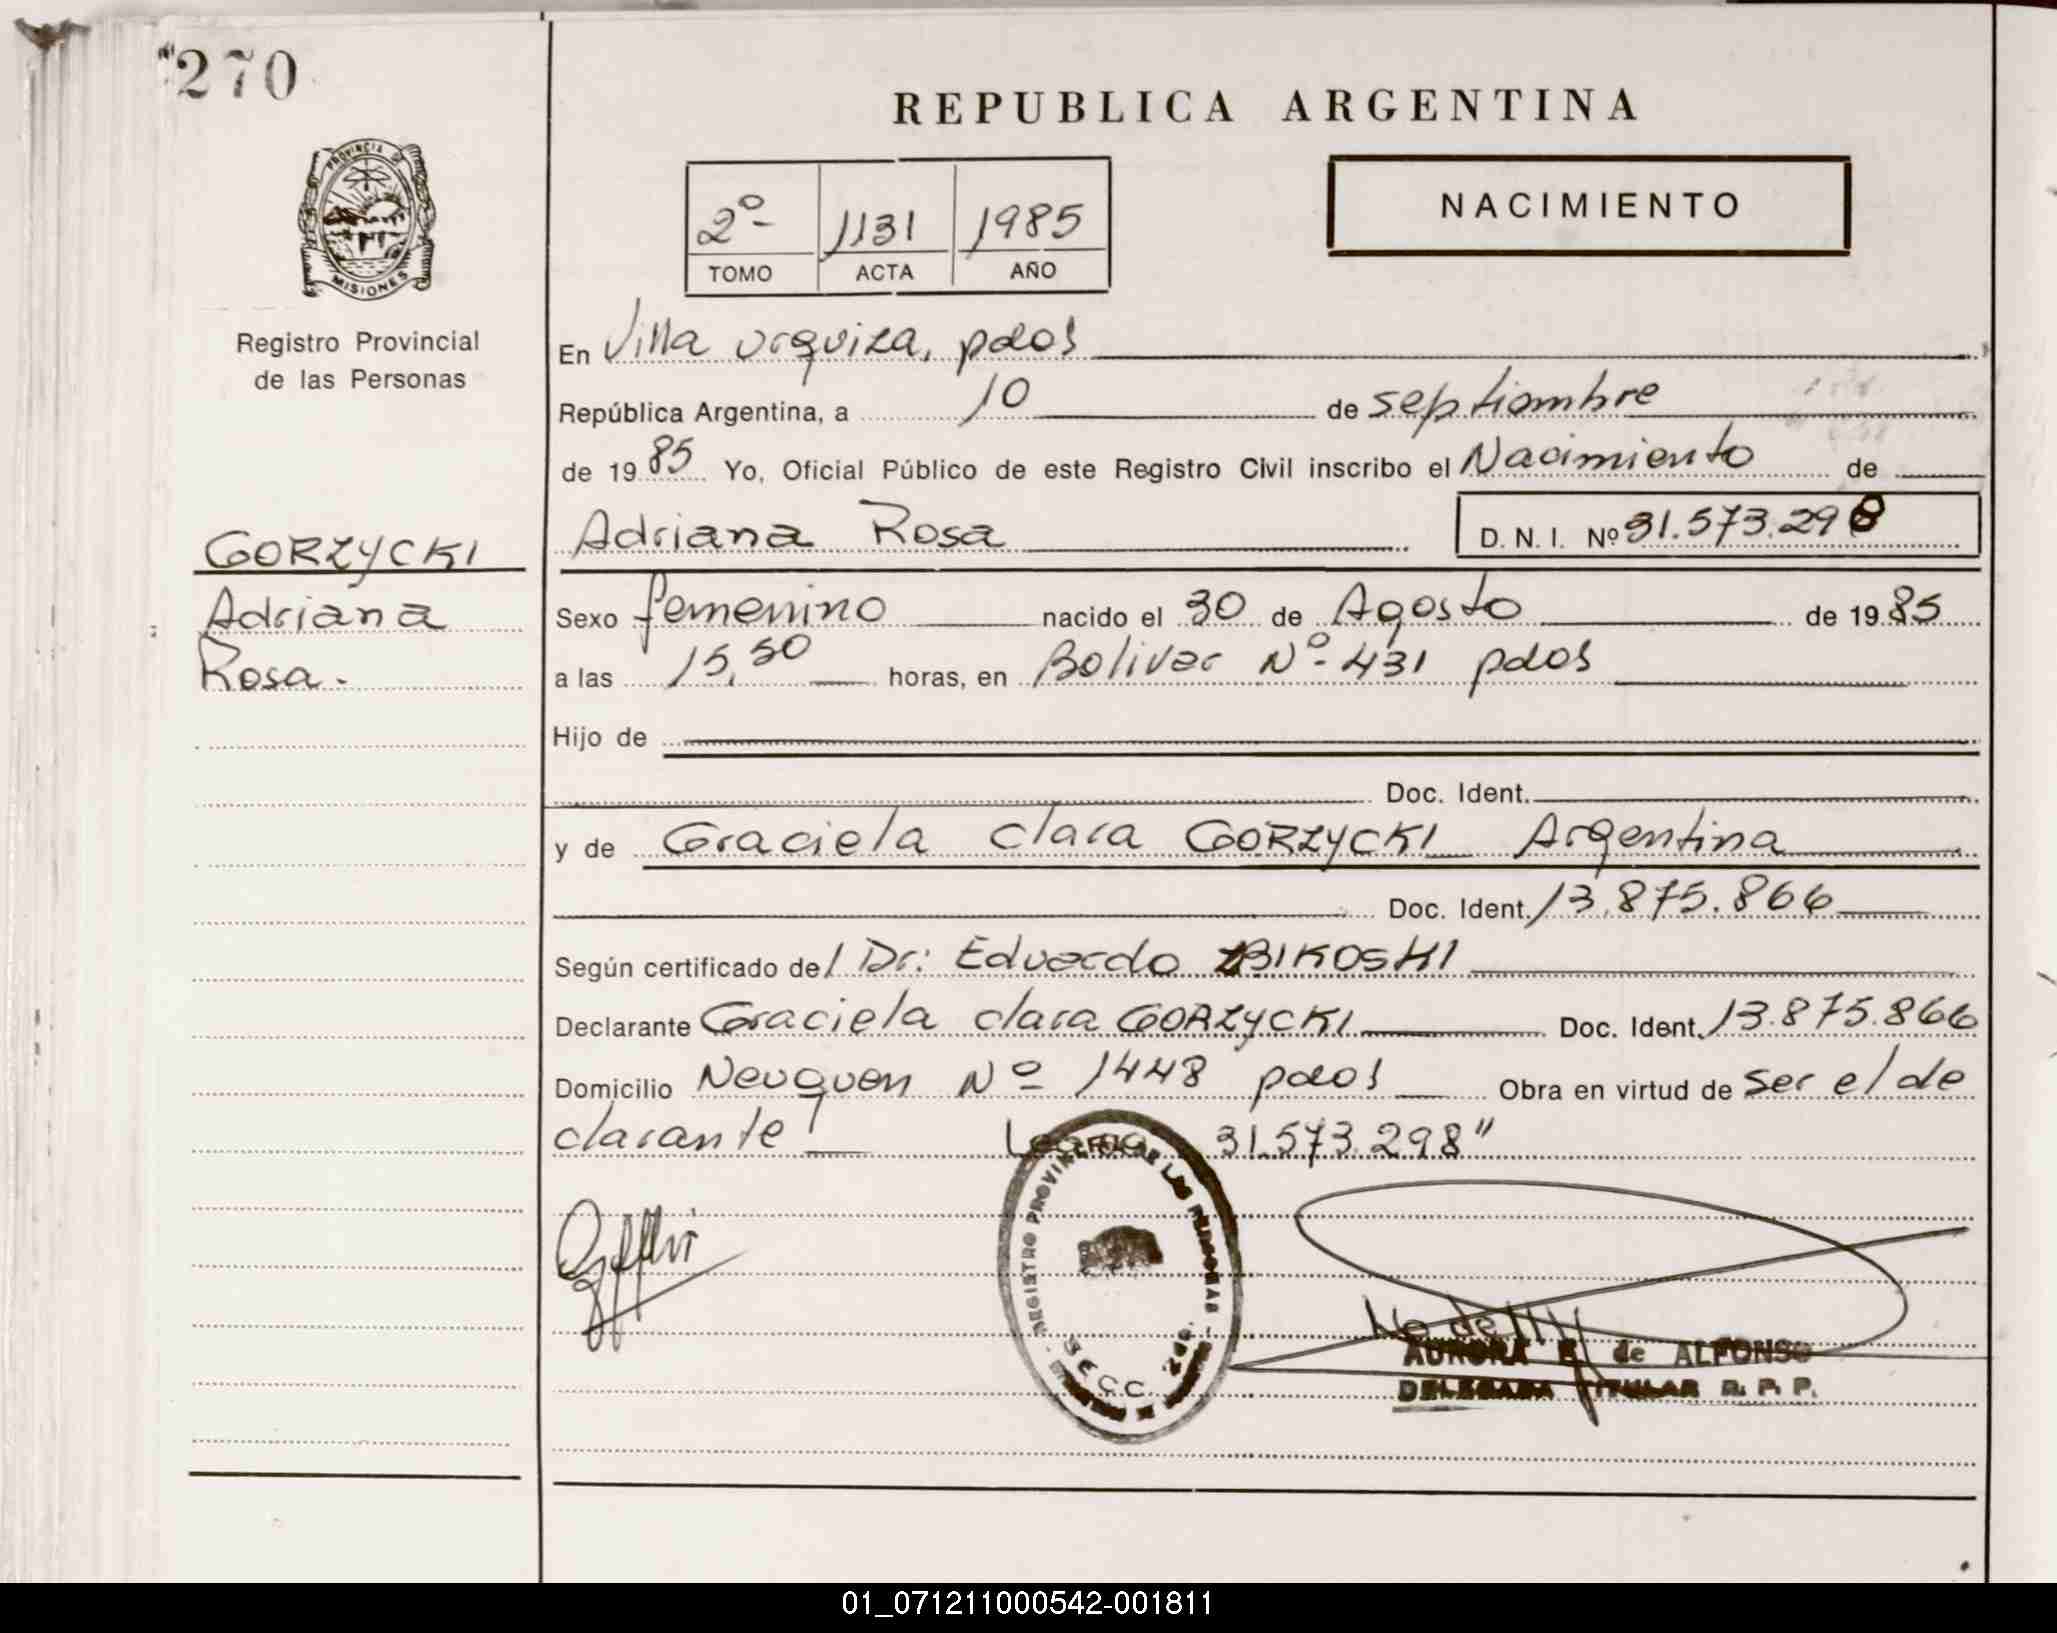 270
REPUBLICA ARGENTINA
NACIMIENTO
2º 1131 1985
TOMO ACTA AÑO
PROVINCIA DE
MISIONES
Registro Provincial
de las Personas
En Villa urquiza, pdas
República Argentina, a 10 de septiembre
de 1985 Yo, Oficial Público de este Registro Civil inscribo el Nacimiento de
GORZYCKI
Adriana Rosa D. N. I. Nº 31.573.298
Adriana
Rosa.
Sexo femenino nacido el 30 de Agosto de 1985
a las 15,50 horas, en Bolivar Nº 431 pdas
Hijo de
Doc. Ident.
y de Graciela Clara GORZYCKI Argentina
Doc. Ident. 13.875.866
Según certificado del Dr: Eduardo ZBIKOSKI
Declarante Graciela Clara GORZYCKI Doc. Ident. 13.875.866
Domicilio Neuquen Nº 1448 pdas Obra en virtud de ser el de
clarante 31.573.298"
REGISTRO PROVINCIAL DE LAS PERSONAS
AURORA E. de ALFONSO
DELEGADA TITULAR R. P. P.
01_071211000542-001811